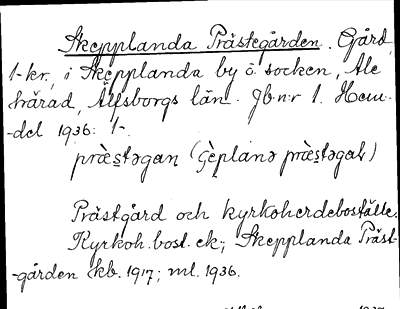 Skepplanda Prästegården. Gård,
1-kr., i Skepplanda by o. socken, Ale
härad, Älfsborgs län. Jb.n:r 1. Hem-
-del 1936: 1-.
præstəgan (
Prästgård och kyrkoherdeboställe.
Kyrkoh. bost. ek.; Skepplanda Präst-
-gården kb. 1917; ml. 1936.